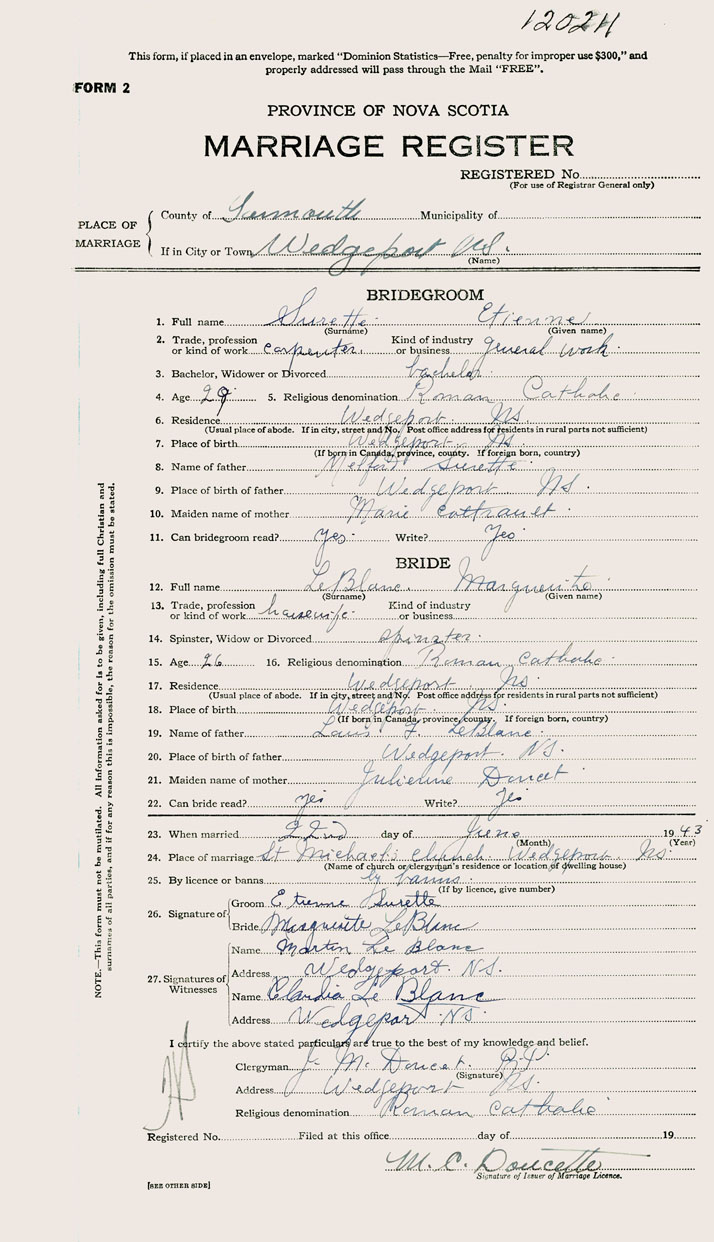 12024
This form, if placed in an envelope, marked “Dominion Statistics—Free, penalty for improper use $300,” and
properly addressed will pass through the Mail “FREE”.
FORM 2
PROVINCE OF NOVA SCOTIA
MARRIAGE REGISTER
REGISTERED No.
(For use of Registrar General only)
PLACE OF MARRIAGE
County of Yarmouth Municipality of
If in City or Town Wedgeport N.S.
(Name)
BRIDEGROOM
1. Full name Surette Etienne
(Surname) (Given name)
2. Trade, profession or kind of work carpenter. Kind of industry or business general work.
3. Bachelor, Widower or Divorced bachelor.
4. Age 29 5. Religious denomination Roman Catholic
6. Residence Wedgeport. NS
(Usual place of abode. If in city, street and No. Post office address for residents in rural parts not sufficient)
7. Place of birth Wedgeport. NS.
(If born in Canada, province, county. If foreign born, country)
8. Name of father Surette
9. Place of birth of father Wedgeport NS.
10. Maiden name of mother Marie
11. Can bridegroom read? Yes. Write? Yes
BRIDE
12. Full name LeBlanc. Marguerite
(Surname) (Given name)
13. Trade, profession or kind of work housewife. Kind of industry or business
14. Spinster, Widow or Divorced spinster.
15. Age 26 16. Religious denomination Roman Catholic
17. Residence Wedgeport. NS.
(Usual place of abode. If in city, street and No. Post office address for residents in rural parts not sufficient)
18. Place of birth Wedgeport. NS.
(If born in Canada, province, county. If foreign born, country)
19. Name of father Louis F. LeBlanc.
20. Place of birth of father Wedgeport. NS.
21. Maiden name of mother Julienne Doucet
22. Can bride read? yes Write? Yes
23. When married 22nd day of June 1943
(Month) (Year)
24. Place of marriage St Michael's church Wedgeport. NS.
(Name of church or clergyman's residence or location of dwelling house)
25. By licence or banns by banns
(If by licence, give number)
26. Signature of
Groom Etienne Surette
Bride Marguerite LeBlanc
27. Signatures of Witnesses
Name Martin Le Blanc
Address Wedgeport. NS.
Name Claudia Le Blanc
Address Wedgeport NS.
I certify the above stated particulars are true to the best of my knowledge and belief.
Clergyman Doucet
(Signature)
Address Wedgeport NS.
Religious denomination Roman Catholic
Registered No. Filed at this office day of 19
M. C. Doucette
Signature of Issuer of Marriage Licence.
[SEE OTHER SIDE]
NOTE.—This form must not be mutilated. All Information asked for is to be given, including full Christian and
surnames of all parties, and if for any reason this is impossible, the reason for the omission must be stated.